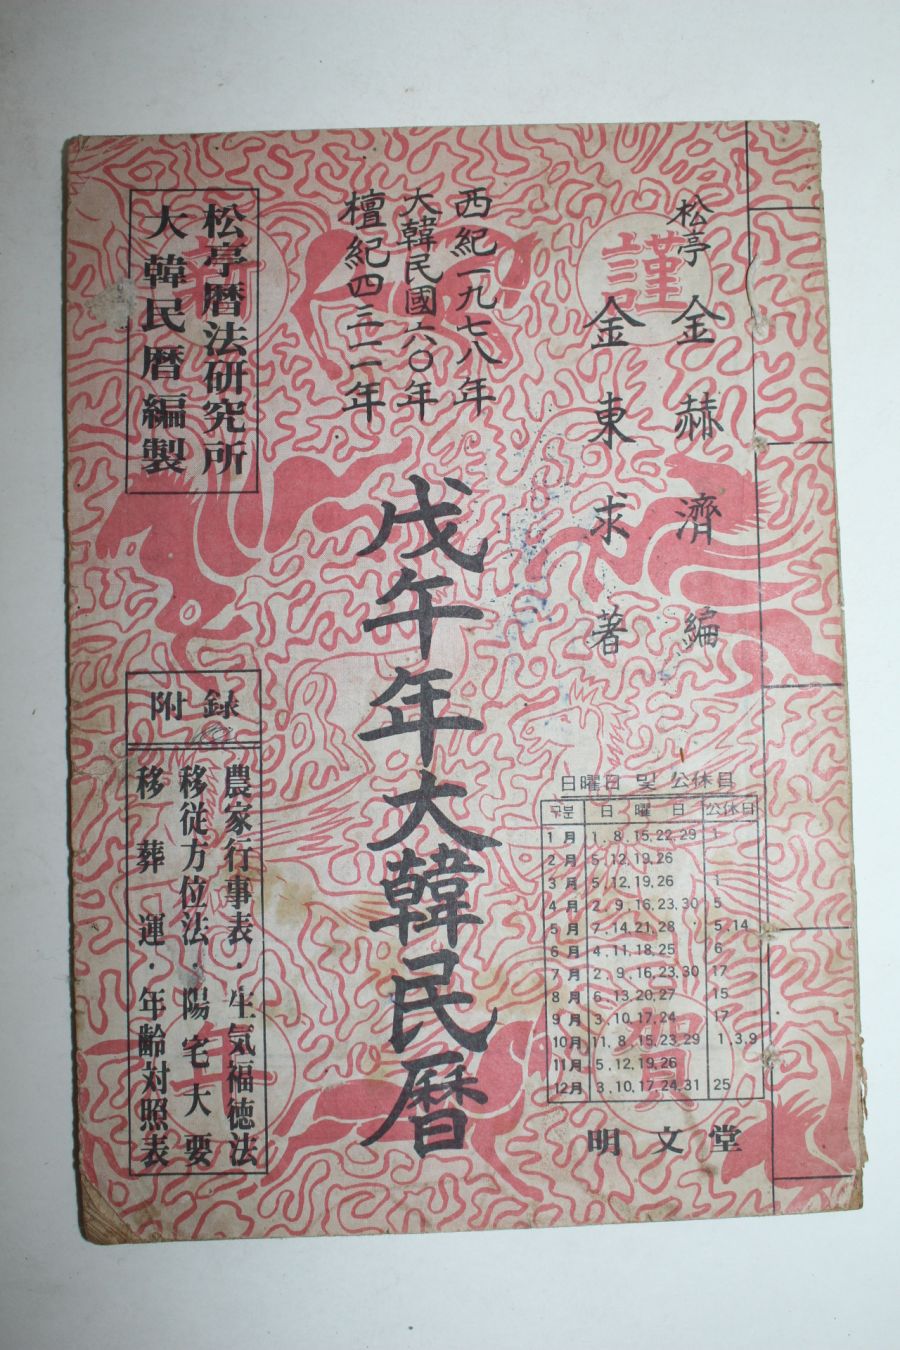 松亭 金赫濟 編
金東求 著
西紀一九七八年
大韓民國六〇年
檀紀四三一一年
戊午年大韓民曆
松亭曆法研究所
大韓民曆編製
附錄
農家行事表·生気福徳法
移従方位法·陽宅大要
移葬運·年齡対照表
謹
賀
新
年
日曜日 및 公休日
구분 日曜日 公休日
1月 1.8.15.22.29 1
2月 5.12.19.26
3月 5.12.19.26 1
4月 2.9.16.23.30 5
5月 7.14.21.28 5.14
6月 4.11.18.25 6
7月 2.9.16.23.30 17
8月 6.13.20.27 15
9月 3.10.17.24 17
10月 11.8.15.23.29 1.3.9
11月 5.12.19.26
12月 3.10.17.24.31 25
明文堂